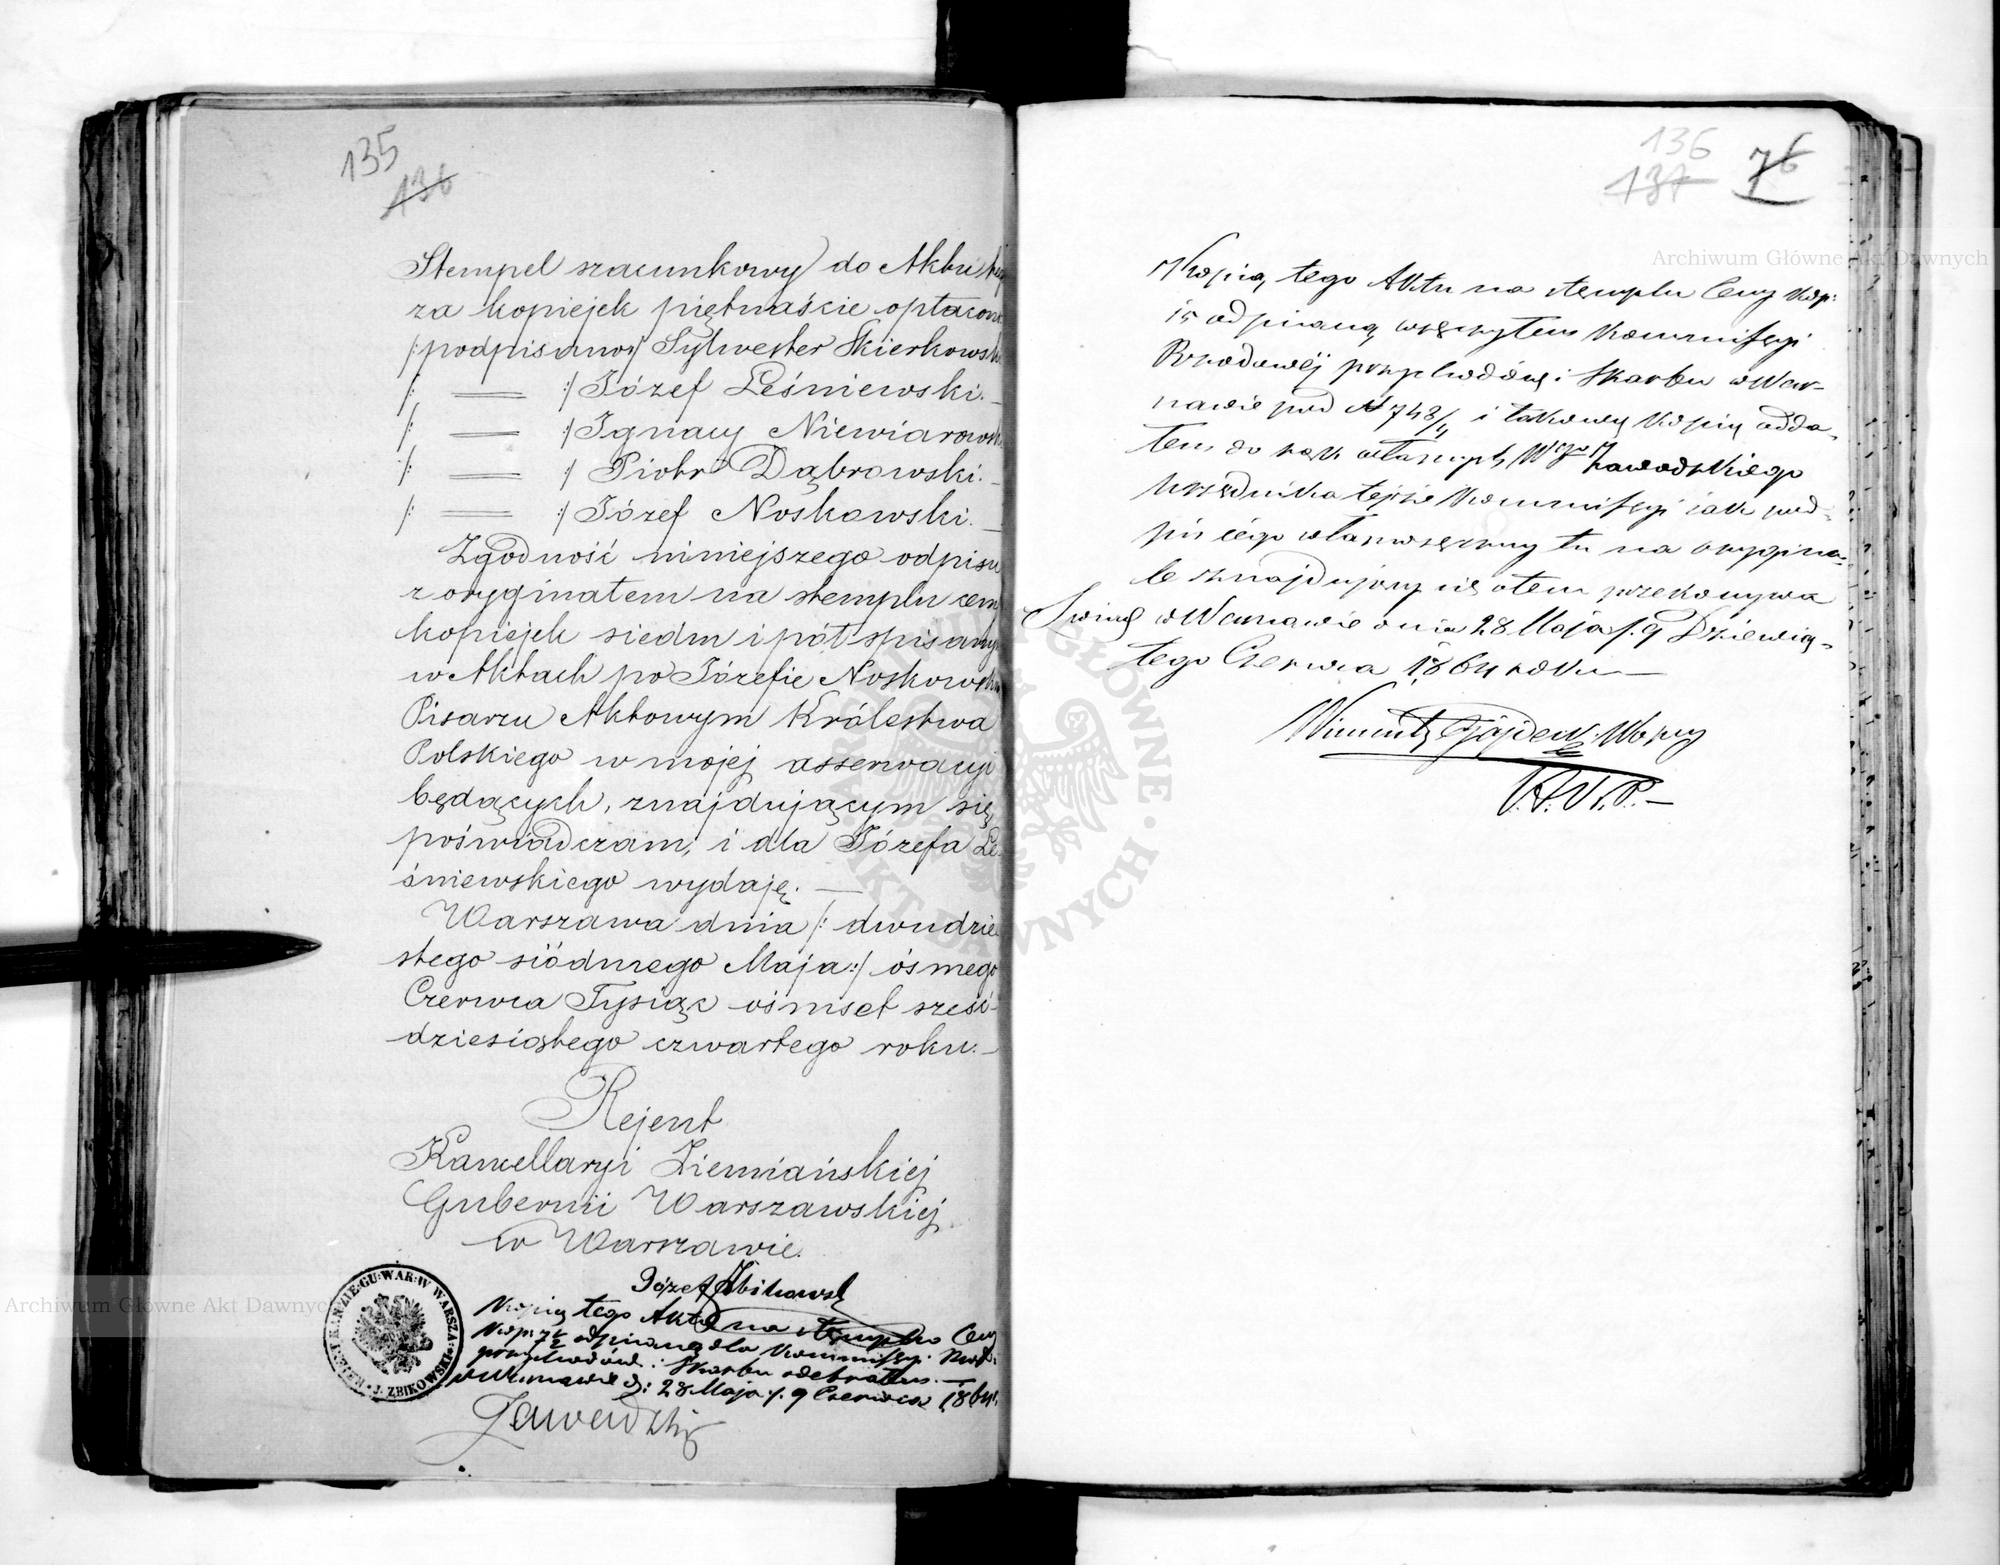 135
136
Stempel szacunkowy do Aktu
za kopiejek piętnaście opłacono
/:podpisano:/ Sylwester Skierkowski
/: = :/ Józef Leśniewski. –
/: = :/ Ignacy Niewiarowski
/: = :/ Piotr Dąbrowski. –
/: = :/ Józef Noskowski. –
Zgodność niniejszego odpisu
z oryginałem na stemplu ceny
kopiejek siedm i pół spisanym
w Aktach po Józefie Noskowskim
Pisarzu Aktowym Królestwa
Polskiego w mojej asserwacyi
będących, znajdującym się,
poświadczam, i dla Józefa Le-
śniewskiego wydaję. —
Warszawa dnia /: dwudzie
stego siódmego Maja :/ ósmego
Czerwca Tysiąc ośmset sześć-
dziesiątego czwartego roku. –
Rejent
Kancellaryi Ziemiańskiej
Gubernii Warszawskiej
w Warszawie.
Józef Zbikowski
Kopią tego Aktu na stemplu Ceny
Kop: 7½ odpisaną dla Kommissyi Rząd:
przychodów i Skarbu odebrałem. —
w Warszawie d: 28 Maja /. 9 Czerwca 1864 r.
Zawadzki
REJENT KANC. ZIE. GU. WAR. W WARSZAWIE J. ZBIKOWSKI
136
137
76
Kopią tego Aktu na stemplu Ceny kop:
15 odpisaną wręczyłem Kommissyi
Rządowéj przychodów i Skarbu w War-
szawie pod N 743/4 i takową kopią odda-
łem do rąk własnych Wgo Zawadzkiego
Urzędnika tejże Kommissyi jak pod-
pis jego własnoręczny tu na orygina-
le znajdujący się o tem przekonywa
w Warszawie dnia 28 Maja /. 9 Dziewią-
tego Czerwca 1864 roku —
Wincenty
Archiwum Główne Akt Dawnych
Archiwum Główne Akt Dawnych
ARCHIWUM GŁÓWNE AKT DAWNYCH